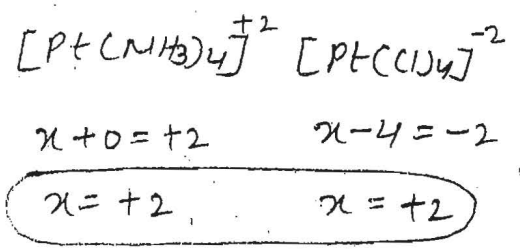 [Pt(NH3)4]+2 [Pt(Cl)4]-2
x+0=+2 x-4=-2
x=+2, x=+2